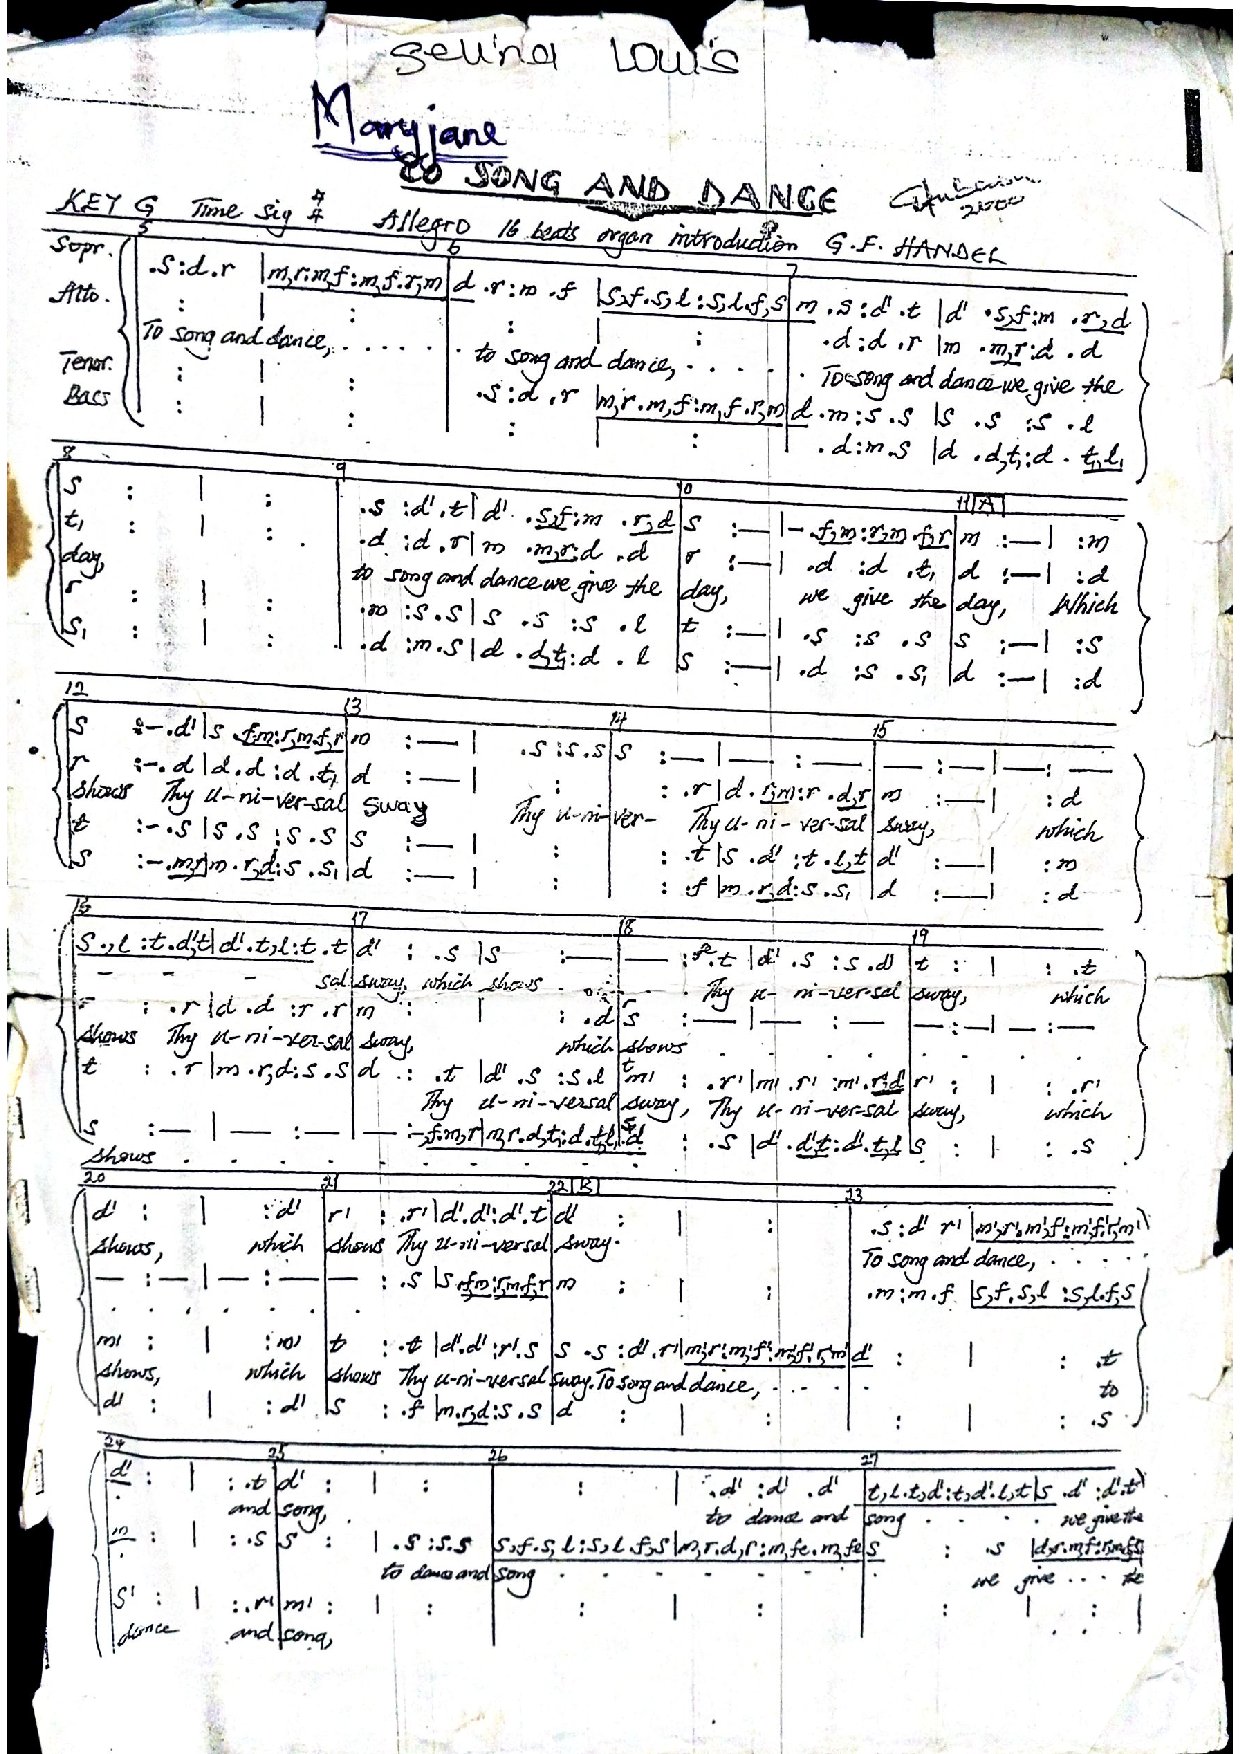 Seuna Louis
Maryjane
TO SONG AND DANCE
2000
KEY G Time Sig 4/4 Allegro 16 beats organ introduction G.F. HANDEL
5 6 7
Sopr. .s:d.r |m,r:m,f:m,f.r,m| d .r:m.f |s,f.s,l:s,l.f,s| m .s:d'.t |d' .s,f:m .r,d
Alto. : | : : | : .d:d.r |m .m,r:d .d
To song and dance, . . . . . to song and dance, . . . . . To song and dance we give the
Tenor. : | : .s:d.r |m,r.m,f:m,f.r,m| d.m:s.s |s .s :s .l
Bass : | : : | : .d:m.s |d .d,t,:d . t,l,
8 9 10 11 A
s : | : .s :d'.t| d' .s,f:m .r,d| s :—|-. f,m:r,m.f,r| m :—| :m
t, : | : .d :d.r| m .m,r:d .d| r :—| .d :d .t,| d :—| :d
day, to song and dance we give the day, we give the day, Which
r : | : .m :s.s| s .s :s .l| t :—| .s :s .s| s :—| :s
s, : | : .d :m.s| d .d,t,:d .l| s :—| .d :s .s,| d :—| :d
12 13 14 15
s :-.d'|s .f,m:r,m.f,r| m :—| .s:s.s| s :—|— : —| — :—|—: —
r :-.d |d.d :d.t,| d :—| : | : .r|d .r,m:r .d,r| m :—| :d
shows Thy u-ni-ver-sal sway Thy u-ni-ver- Thy u-ni-ver-sal sway, which
t :-.s |s.s :s.s| s :—| : | : .t|s .d' :t.l,t| d' :—| :m
s :-.m,r|m.r,d:s.s,| d :—| : | : .f|m .r,d:s.s,| d :—| :d
16 17 18 19
s.,l:t.d',t|d'.t,l:t.t| d' : .s |s :—| — : .t |d' .s :s.d'| t : | : .t
- - - sal sway, which shows . . . . Thy u-ni-ver-sal sway, which
r : .r|d.d :r.r| m : | : .d| s :—|— : —| —:—|—:—
shows Thy u-ni-ver-sal sway, which shows . . . . . . .
t : .r|m.r,d:s.s| d : .t |d' .s :s.l| m' : .r'|m'.r' :m'.r,d'| r' : | : .r'
Thy u-ni-versal sway, Thy u-ni-ver-sal sway, which
s :—|— : —| — :-,f.m,r|m,r.d,t,:d.t,l,| d : .s |d'.d't:d'.t,l| s : | : .s
shows . . . . . . . . .
20 21 22 B 23
d' : | :d'| r' : .r'|d'.d':d'.t| d' : | : | .s:d' r'|m',r'.m',f':m',f'.r',m'
shows, which shows Thy u-ni-versal sway. To song and dance, . . . .
— : —|— : —| — : .s |s.f,m:r,m.f,r| m : | : | .m:m.f |s,f.s,l :s,l.f,s
. . . . . . .
m' : | :m'| t : .t |d'.d':r'.s| s .s:d'.r'|m',r':m',f':m',f'.r',m'| d' : | : .t
shows, which shows Thy u-ni-versal sway. To song and dance, . . . . to
d' : | :d'| s : .f |m.r,d:s.s| d : | : | : | : .s
24 25 26 27
d' : | : .t| d' : | : | : | .d' :d' .d'| t,l.t,d':t,d'.l,t|s .d' :d'.t
and song, to dance and song . . . . we give the
m : | : .s| s : | .s:s.s| s,f.s,l:s,l.f,s|m,r.d,r:m,fe.m,fe| s : .s |d,r.m,f:r,m.f,s
to dance and song . . . . . . . we give . . . the
s' : | : .r'| m' : | : | : | : | : | : |
dance and song,